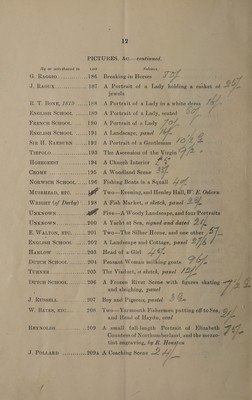 12
PICTURES, &c.—continued.
By or attributed to LOT SUBJECT.
G. RAGGIO 186 Breaking-in Horses
J. RAOUX 187 A Portrait of a Lady holding a casket of
jewels
R. T. BONE, 1819 188 A Portrait of a Lady in a white dress 16/-
ENGLISH SCHOOL 189 A Portrait of a Lady, seated
FRENCH SCHOOL 190 A Portrait of a Lady
ENGLISH SCHOOL 191 A Landscape, panel 16/-
SIR H. RAEBURN 192 A Portrait of a Gentleman
TIEPOLO 193 The Ascension of the Virgin
HOREBEEST 194 A Church Interior
CROME 195 A Woodland Scene
NORWICH SCHOOL 196 Fishing Boats in a Squall
MUIRHEAD, ETC. Two—Evening, and Henley Hall, W. E. Osborn
WRIGHT (of Derby) 198 A Fish Market, a sketch, panel
UNKNOWN Five—A Woody Landscape, and four Portraits
UNKNOWN 200 A Yacht at Sea, signed and dated
R. WALTON, ETC. 201 Two—The Silker Horse, and one other
ENGLISH SCHOOL 202 A Landscape and Cottage, panel 27/6
HARLOW 203 Head of a Girl
DUTCH SCHOOL 204 Peasant Women milking goats
TURNER 205 The Viaduct, a sketch, panel
DUTCH SCHOOL 206 A Frozen River Scene with figures skating
and sleighing, panel
J. RUSSELL 207 Boy and Pigeons, pastel
W. BATES, ETC. 208 Two—Yarmouth Fisherman putting off to Sea,
and Head of Haydn, oval
REYNOLDS 209 A small full-length Portrait of Elizabeth
Countess of Northumberland, and the mezzo-
tint engraving, by R. Houston
J. POLLARD 209A A Coaching Scene